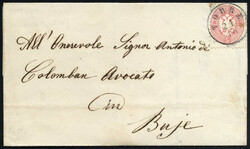 All' Onorevole Signor Antonio de
Colomban Avocato
in
Buje